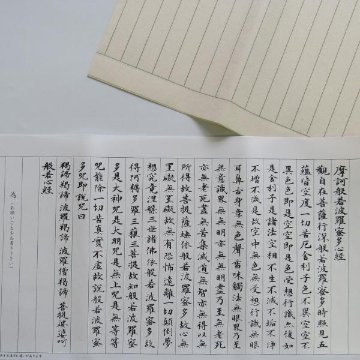 摩訶般若波羅蜜多心經
觀自在菩薩行深般若波羅蜜多時照見五
蘊皆空度一切苦厄舍利子色不異空空不
異色色即是空空即是色受想行識亦復如
是舍利子是諸法空相不生不滅不垢不淨
不增不減是故空中無色無受想行識無眼
耳鼻舌身意無色聲香味觸法無眼界乃至
無意識界無無明亦無無明盡乃至無老死
亦無老死盡無苦集滅道無智亦無得以無
所得故菩提薩埵依般若波羅蜜多故心無
罣礙無罣礙故無有恐怖遠離一切顛倒夢
想究竟涅槃三世諸佛依般若波羅蜜多故
得阿耨多羅三藐三菩提故知般若波羅蜜
多是大神咒是大明咒是無上咒是無等等
咒能除一切苦真實不虛故說般若波羅蜜
多咒即說咒曰
羯諦羯諦 波羅羯諦 波羅僧羯諦 菩提娑婆訶
般若心經
為